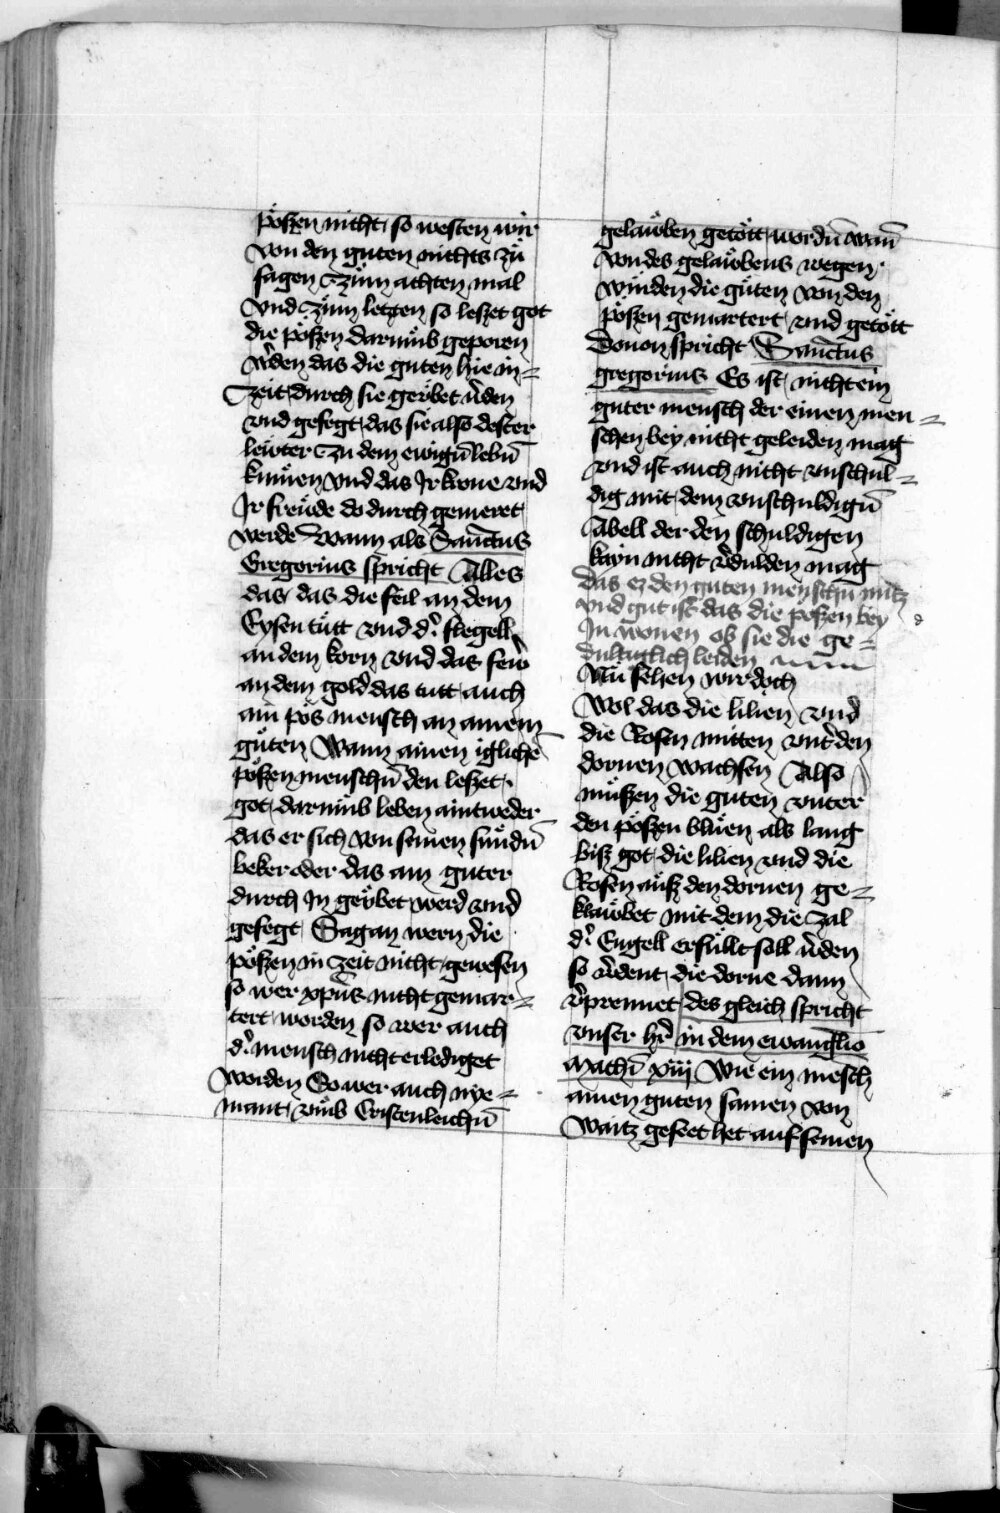 pößen nicht so westen wir
von den guten nichts zů
sagen Zům achten mal
Vnd zům letzten so leßet got
die pößen darműb geporen
ẘden das die guten hie in=
Zeit durch sie gev̈bet ẘden
vnd gefegt das sie also dester
lewter zu dem ewigen̄ lebñ
kumen vnd das Ir krone vnd
Ir frewde do durch gemeret
werde Wann als Sanctus
Gregorius spricht Alles
das das die feil an dem
Eysen tůtt vnd d' flegell
an dem korn vnd das fewr
an dem gold das tutt auch
ain pös mensch an ainem
gůten Wann ainen iglichē
pößen menschñ den leßet
got darműb leben aintweder
das er sich von seinen sündñ
beker oder das ain guter
durch In geübet werd vnd
gefegt Sagan wern die
pößen in zeit nicht gewesen
so wer xpūs nicht gemar=
tert worden so wer auch
d' mensch nicht erlediget
worden So wer auch nye=
mant vmb Cristenleichñ
gelawben getött wordñ wañ
von des gelawbens wegen
würden die gůten von den
pößen gemartert vnd getött
Douon spricht Sanctus
gregorius Es ist nicht ein
guter mensch der einen men=
schen bey nicht geleiden mag
vnd ist auch nicht vnschul=
dig mit dem vnschuldigñ
Abell der den schuldigen
kayn nicht v'dulden mag
das ez den guten menschñ nütz
vnd gut ist das die poßen bey
In wonen ob sie die ge=
dultiglich leiden
Nu sehen wir doch
Wol das die lilien vnd
die Rosen mitten vnt' den
dornen wachsen Also
müßen die guten vnter
den pößen blüen als lang
biß got die lilien vnd die
Rosen auß den dornen ge=
klawbet mit dem die zal
d' Engell erfüllt soll ẘden
so ẘdent die dorne dann
v'prennet des gleich spricht
vnser h'r in dem ewangelio
Mathei xiij Wie ein mesch
ainen guten samen von
Waitz geseet het auf seinen